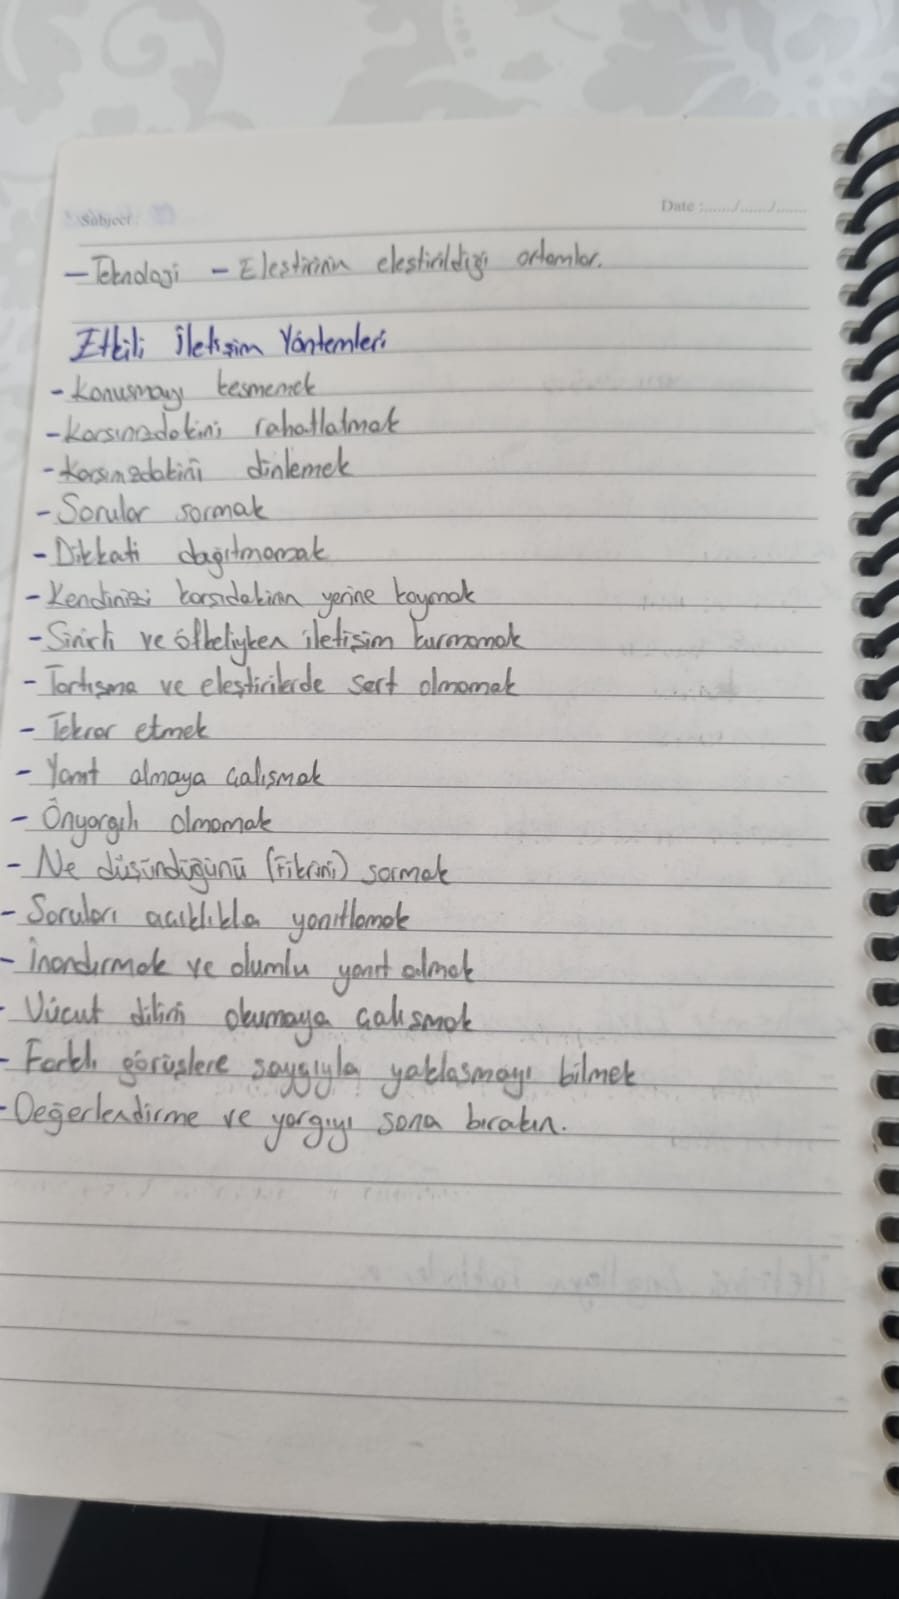 Subject:
Date :....../....../......
- Teknoloji - Eleştirinin eleştirildiği ortamlar.
Etkili İletişim Yöntemleri
- Konuşmayı kesmemek
- Karşınızdakini rahatlatmak
- Karşınızdakini dinlemek
- Sorular sormak
- Dikkati dağıtmamak
- Kendinizi karşıdakinin yerine koymak
- Sinirli ve öfkeliyken iletişim kurmamak
- Tartışma ve eleştirilerde sert olmamak
- Tekrar etmek
- Yanıt almaya çalışmak
- Önyargılı olmamak
- Ne düşündüğünü (Fikrini) sormak
- Soruları açıklıkla yanıtlamak
- İnandırmak ve olumlu yanıt almak
- Vücut dilini okumaya çalışmak
- Farklı görüşlere saygıyla yaklaşmayı bilmek
- Değerlendirme ve yargıyı sona bırakın.